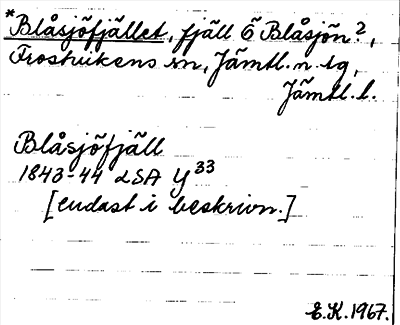 *Blåsjöfjället, fjäll Ö Blåsjön ²,
Frostvikens sn, Jämtl. n. tg,
Jämtl. l.
Blåsjöfjäll
1843-44 LSA Y³³
[endast i beskrivn.]
E.K. 1967.